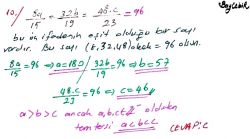 Bayçelebi
10./ 8a/15 = 32b/19 = 48.c/23 = 96
bu üç ifadenin eşit olduğu bir sayı
vardır. Bu sayı (8,32,48)okek = 96 olsun.
8a/15 = 96 ⇒ a=180 / 32b/19 = 96 ⇒ b=57
48.c/23 = 96 ⇒ c=46
a>b>c ancak a,b,c∈Z⁻ olduğundan
tam tersi a<b<c
CEVAP: C